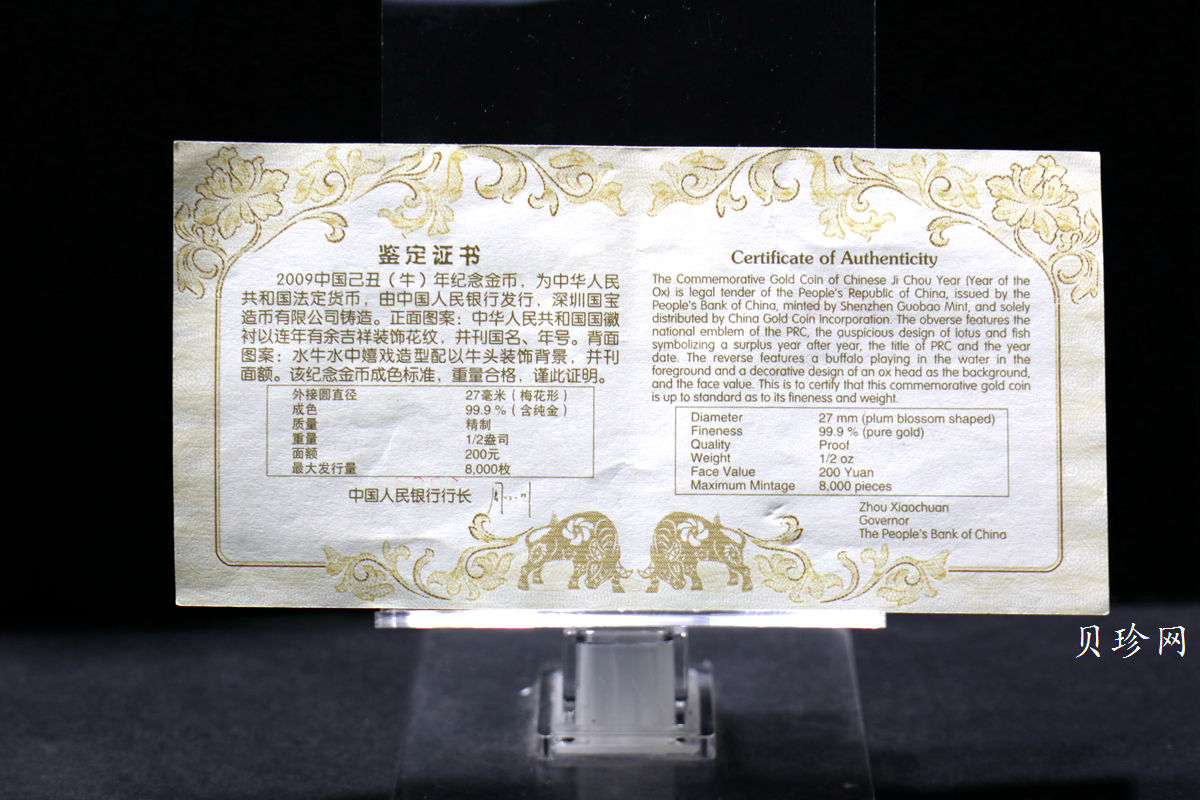 鉴定证书
2009中国己丑（牛）年纪念金币，为中华人民
共和国法定货币，由中国人民银行发行，深圳国宝
造币有限公司铸造。正面图案：中华人民共和国国徽
衬以连年有余吉祥装饰花纹，并刊国名、年号。背面
图案：水牛水中嬉戏造型配以牛头装饰背景，并刊
面额。该纪念金币成色标准，重量合格，谨此证明。
外接圆直径 27毫米（梅花形）
成色 99.9%（含纯金）
质量 精制
重量 1/2盎司
面额 200元
最大发行量 8,000枚
中国人民银行行长
Certificate of Authenticity
The Commemorative Gold Coin of Chinese Ji Chou Year (Year of the
Ox) is legal tender of the People's Republic of China, issued by the
People's Bank of China, minted by Shenzhen Guobao Mint, and solely
distributed by China Gold Coin Incorporation. The obverse features the
national emblem of the PRC, the auspicious design of lotus and fish
symbolizing a surplus year after year, the title of PRC and the year
date. The reverse features a buffalo playing in the water in the
foreground and a decorative design of an ox head as the background,
and the face value. This is to certify that this commemorative gold coin
is up to standard as to its fineness and weight.
Diameter 27 mm (plum blossom shaped)
Fineness 99.9 % (pure gold)
Quality Proof
Weight 1/2 oz
Face Value 200 Yuan
Maximum Mintage 8,000 pieces
Zhou Xiaochuan
Governor
The People's Bank of China
贝珍网